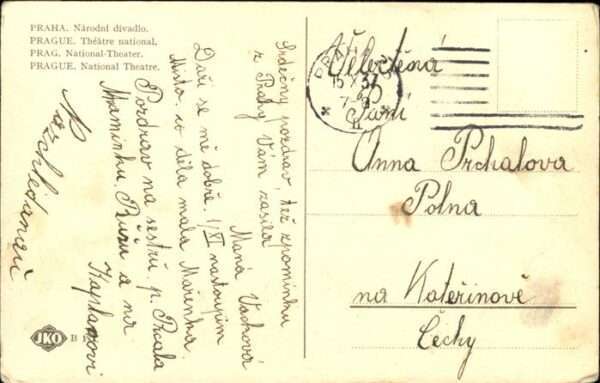 PRAHA. Národní divadlo.
PRAGUE. Théâtre national.
PRAG. National-Theater.
PRAGUE. National Theatre.
Srdečný pozdrav, též vzpomínku
z Prahy Vám zasílá
Maná Vachová
Daří se mi dobře. 1/XI nastoupím
místo. co dělá malá Mařenka
Pozdrav na sestru. p.
Maminku. a na
Kaplanovi
Na shledanou
PRAHA
15 X 37
Velectěná
Paní
Anna Prchalova
Polna
na Kateřinově
Čechy
JKO